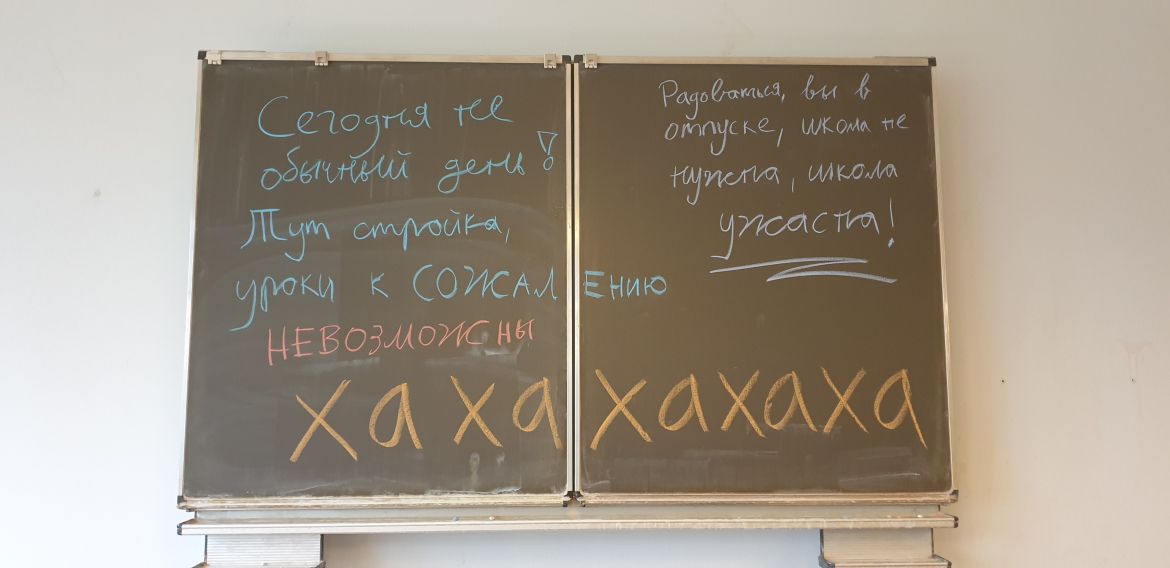 Сегодня не
обычный день!
Тут стройка,
уроки к СОЖАЛЕНИЮ
НЕВОЗМОЖНЫ
Радоваться, вы в
отпуске, школа не
нужна, школа
ужастна!
хахахахаха